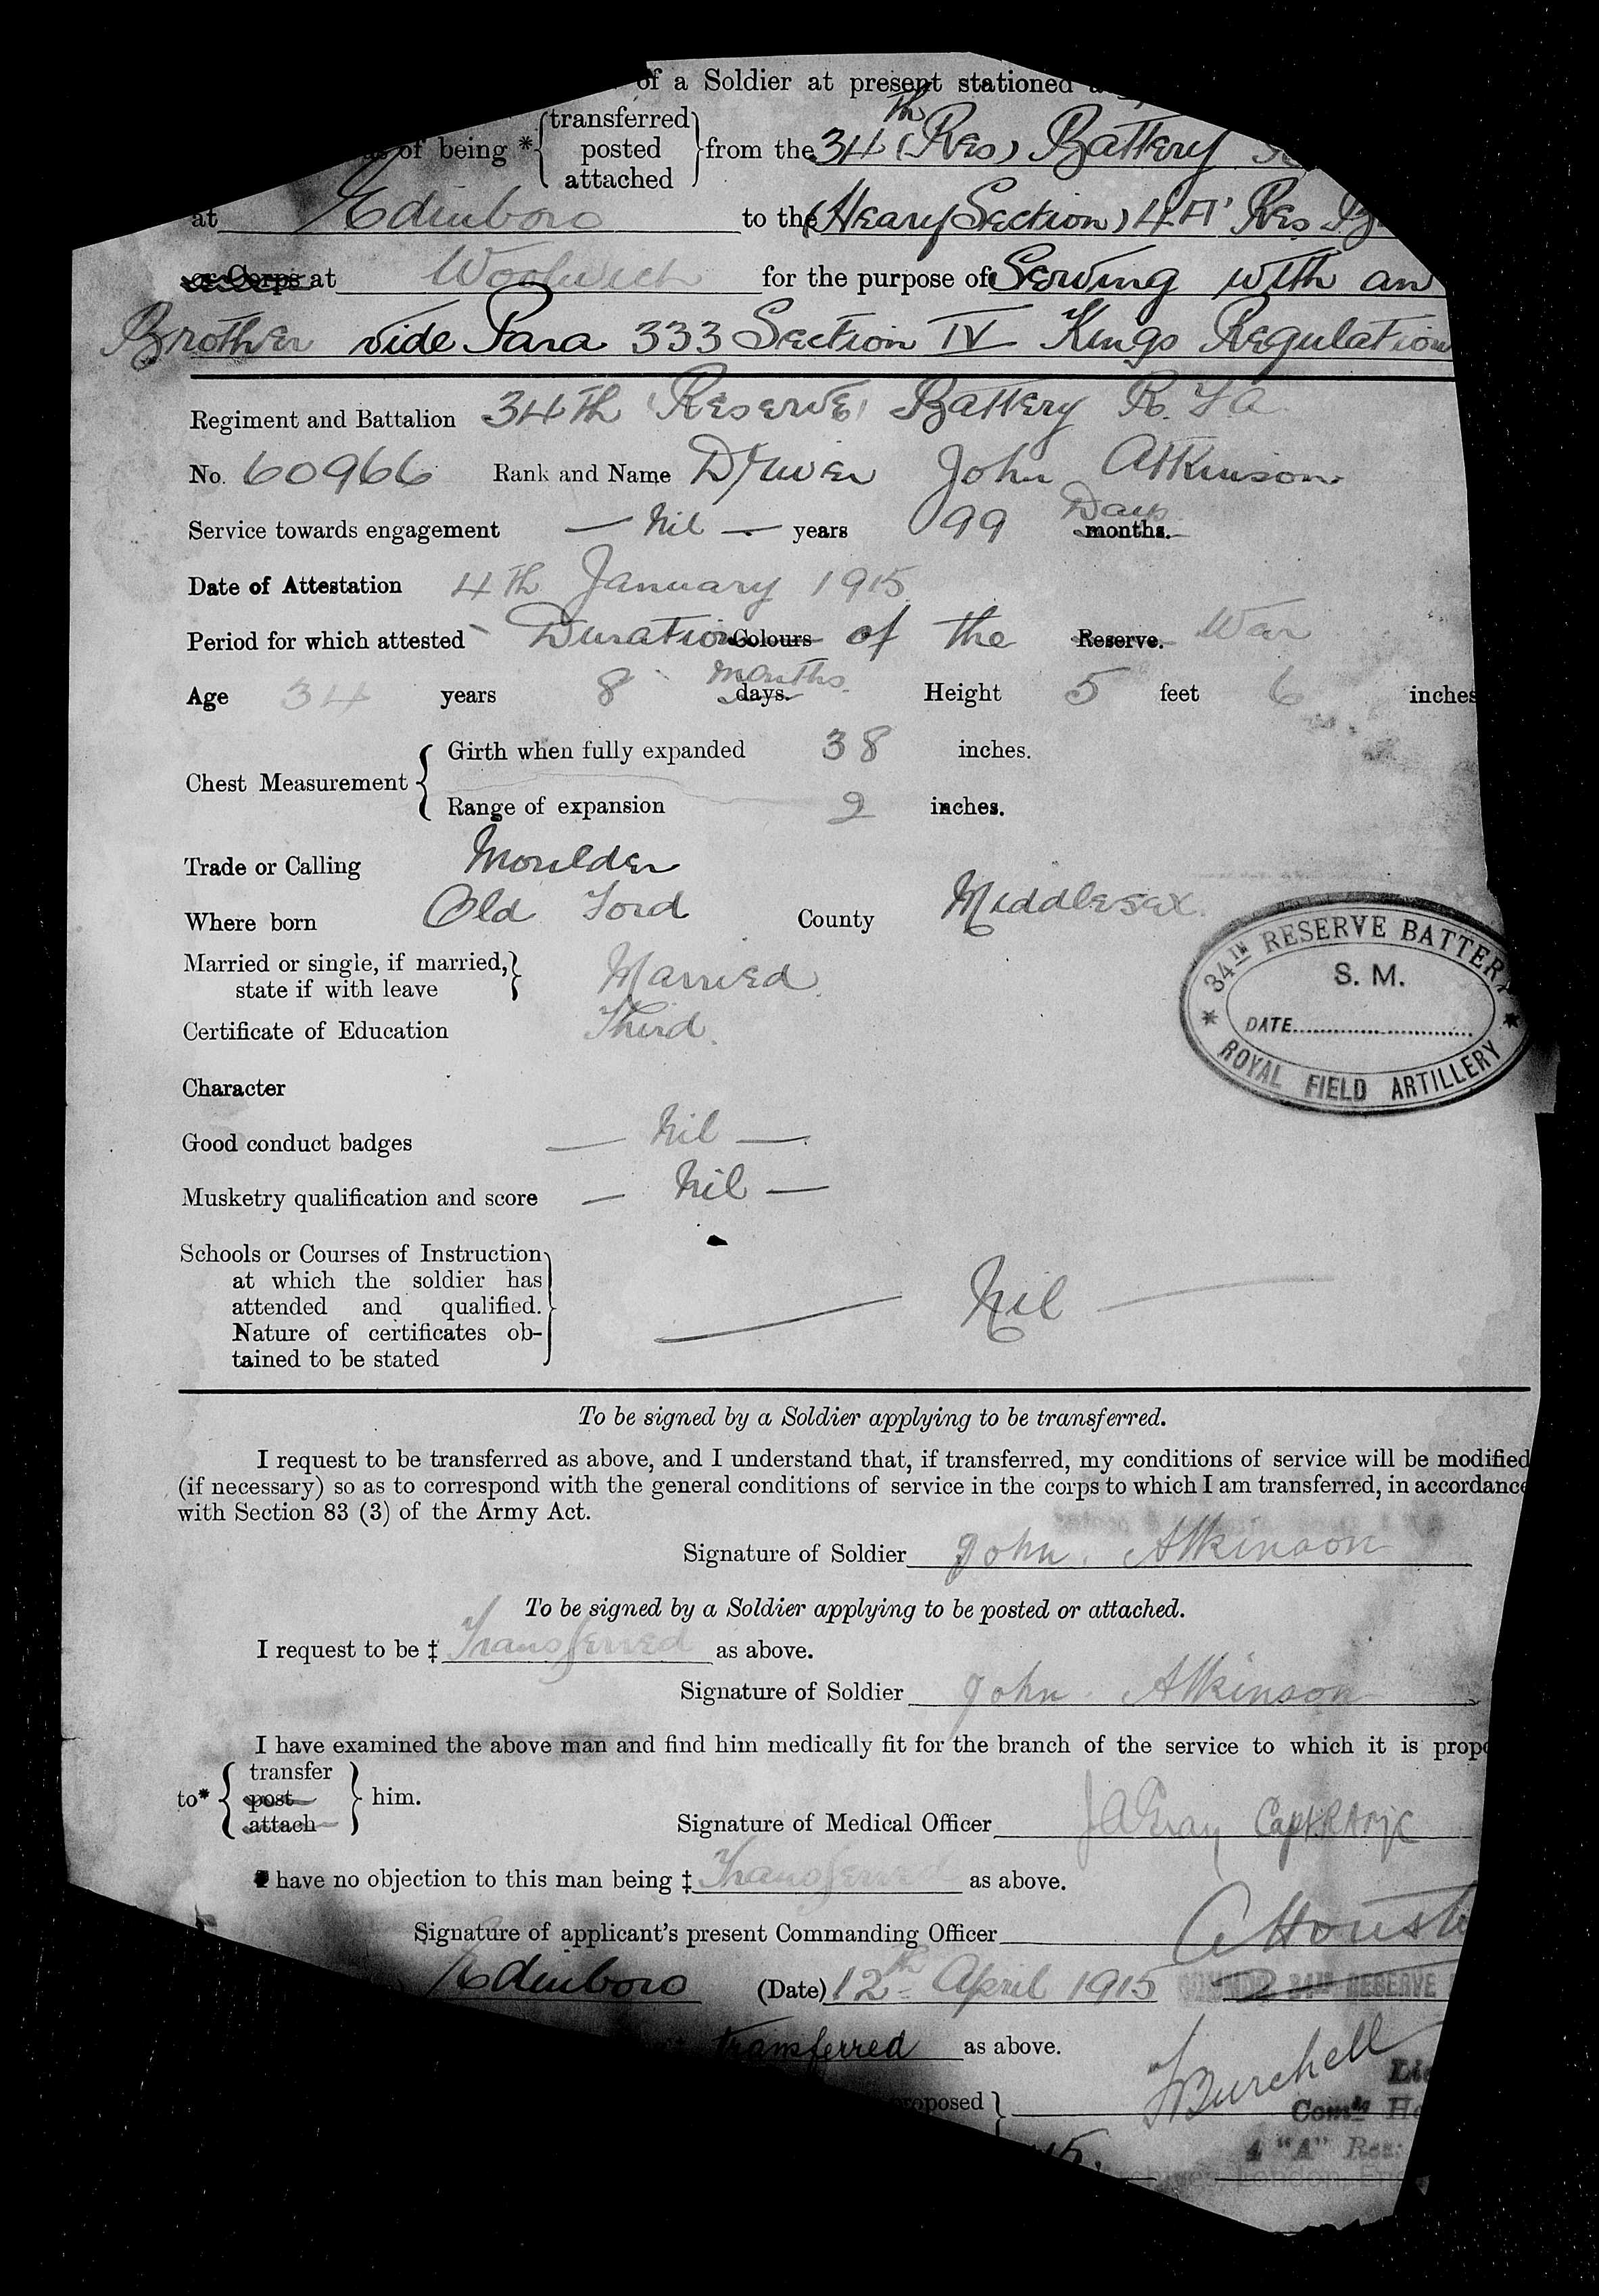 of a Soldier at present stationed
of being * { transferred posted attached } from the 34th (Res) Battery
at Edinboro to the (Heavy Section) 4 "A" Res
or Corps at Woolwich for the purpose of Serving with an
Brother vide Para 333 Section IV Kings Regulation
Regiment and Battalion 34th (Reserve) Battery R.F.A.
No. 60966 Rank and Name Driver John Atkinson
Service towards engagement — Nil — years 99 months. Days
Date of Attestation 4th January 1915
Period for which attested Duration Colours of the Reserve. War
Age 34 years 8 days. months Height 5 feet 6 inches
Chest Measurement { Girth when fully expanded 38 inches.
Range of expansion 2 inches.
Trade or Calling Moulder
Where born Old Ford County Middlesex.
Married or single, if married, state if with leave } Married.
Certificate of Education Third.
34TH RESERVE BATTERY
S. M.
DATE
ROYAL FIELD ARTILLERY
Character
Good conduct badges — Nil —
Musketry qualification and score — Nil —
Schools or Courses of Instruction
at which the soldier has
attended and qualified.
Nature of certificates ob-
tained to be stated } — Nil —
To be signed by a Soldier applying to be transferred.
I request to be transferred as above, and I understand that, if transferred, my conditions of service will be modified
(if necessary) so as to correspond with the general conditions of service in the corps to which I am transferred, in accordance
with Section 83 (3) of the Army Act.
Signature of Soldier John Atkinson
To be signed by a Soldier applying to be posted or attached.
I request to be ‡ Transferred as above.
Signature of Soldier John Atkinson
I have examined the above man and find him medically fit for the branch of the service to which it is propo
to* { transfer post attach } him.
Signature of Medical Officer J A Gray Capt RAMC
I have no objection to this man being ‡ Transferred as above.
Signature of applicant's present Commanding Officer
Edinboro (Date) 12th April 1915 34TH RESERVE
transferred as above.
proposed } Burchell
Comdg
4 "A" Res:
London